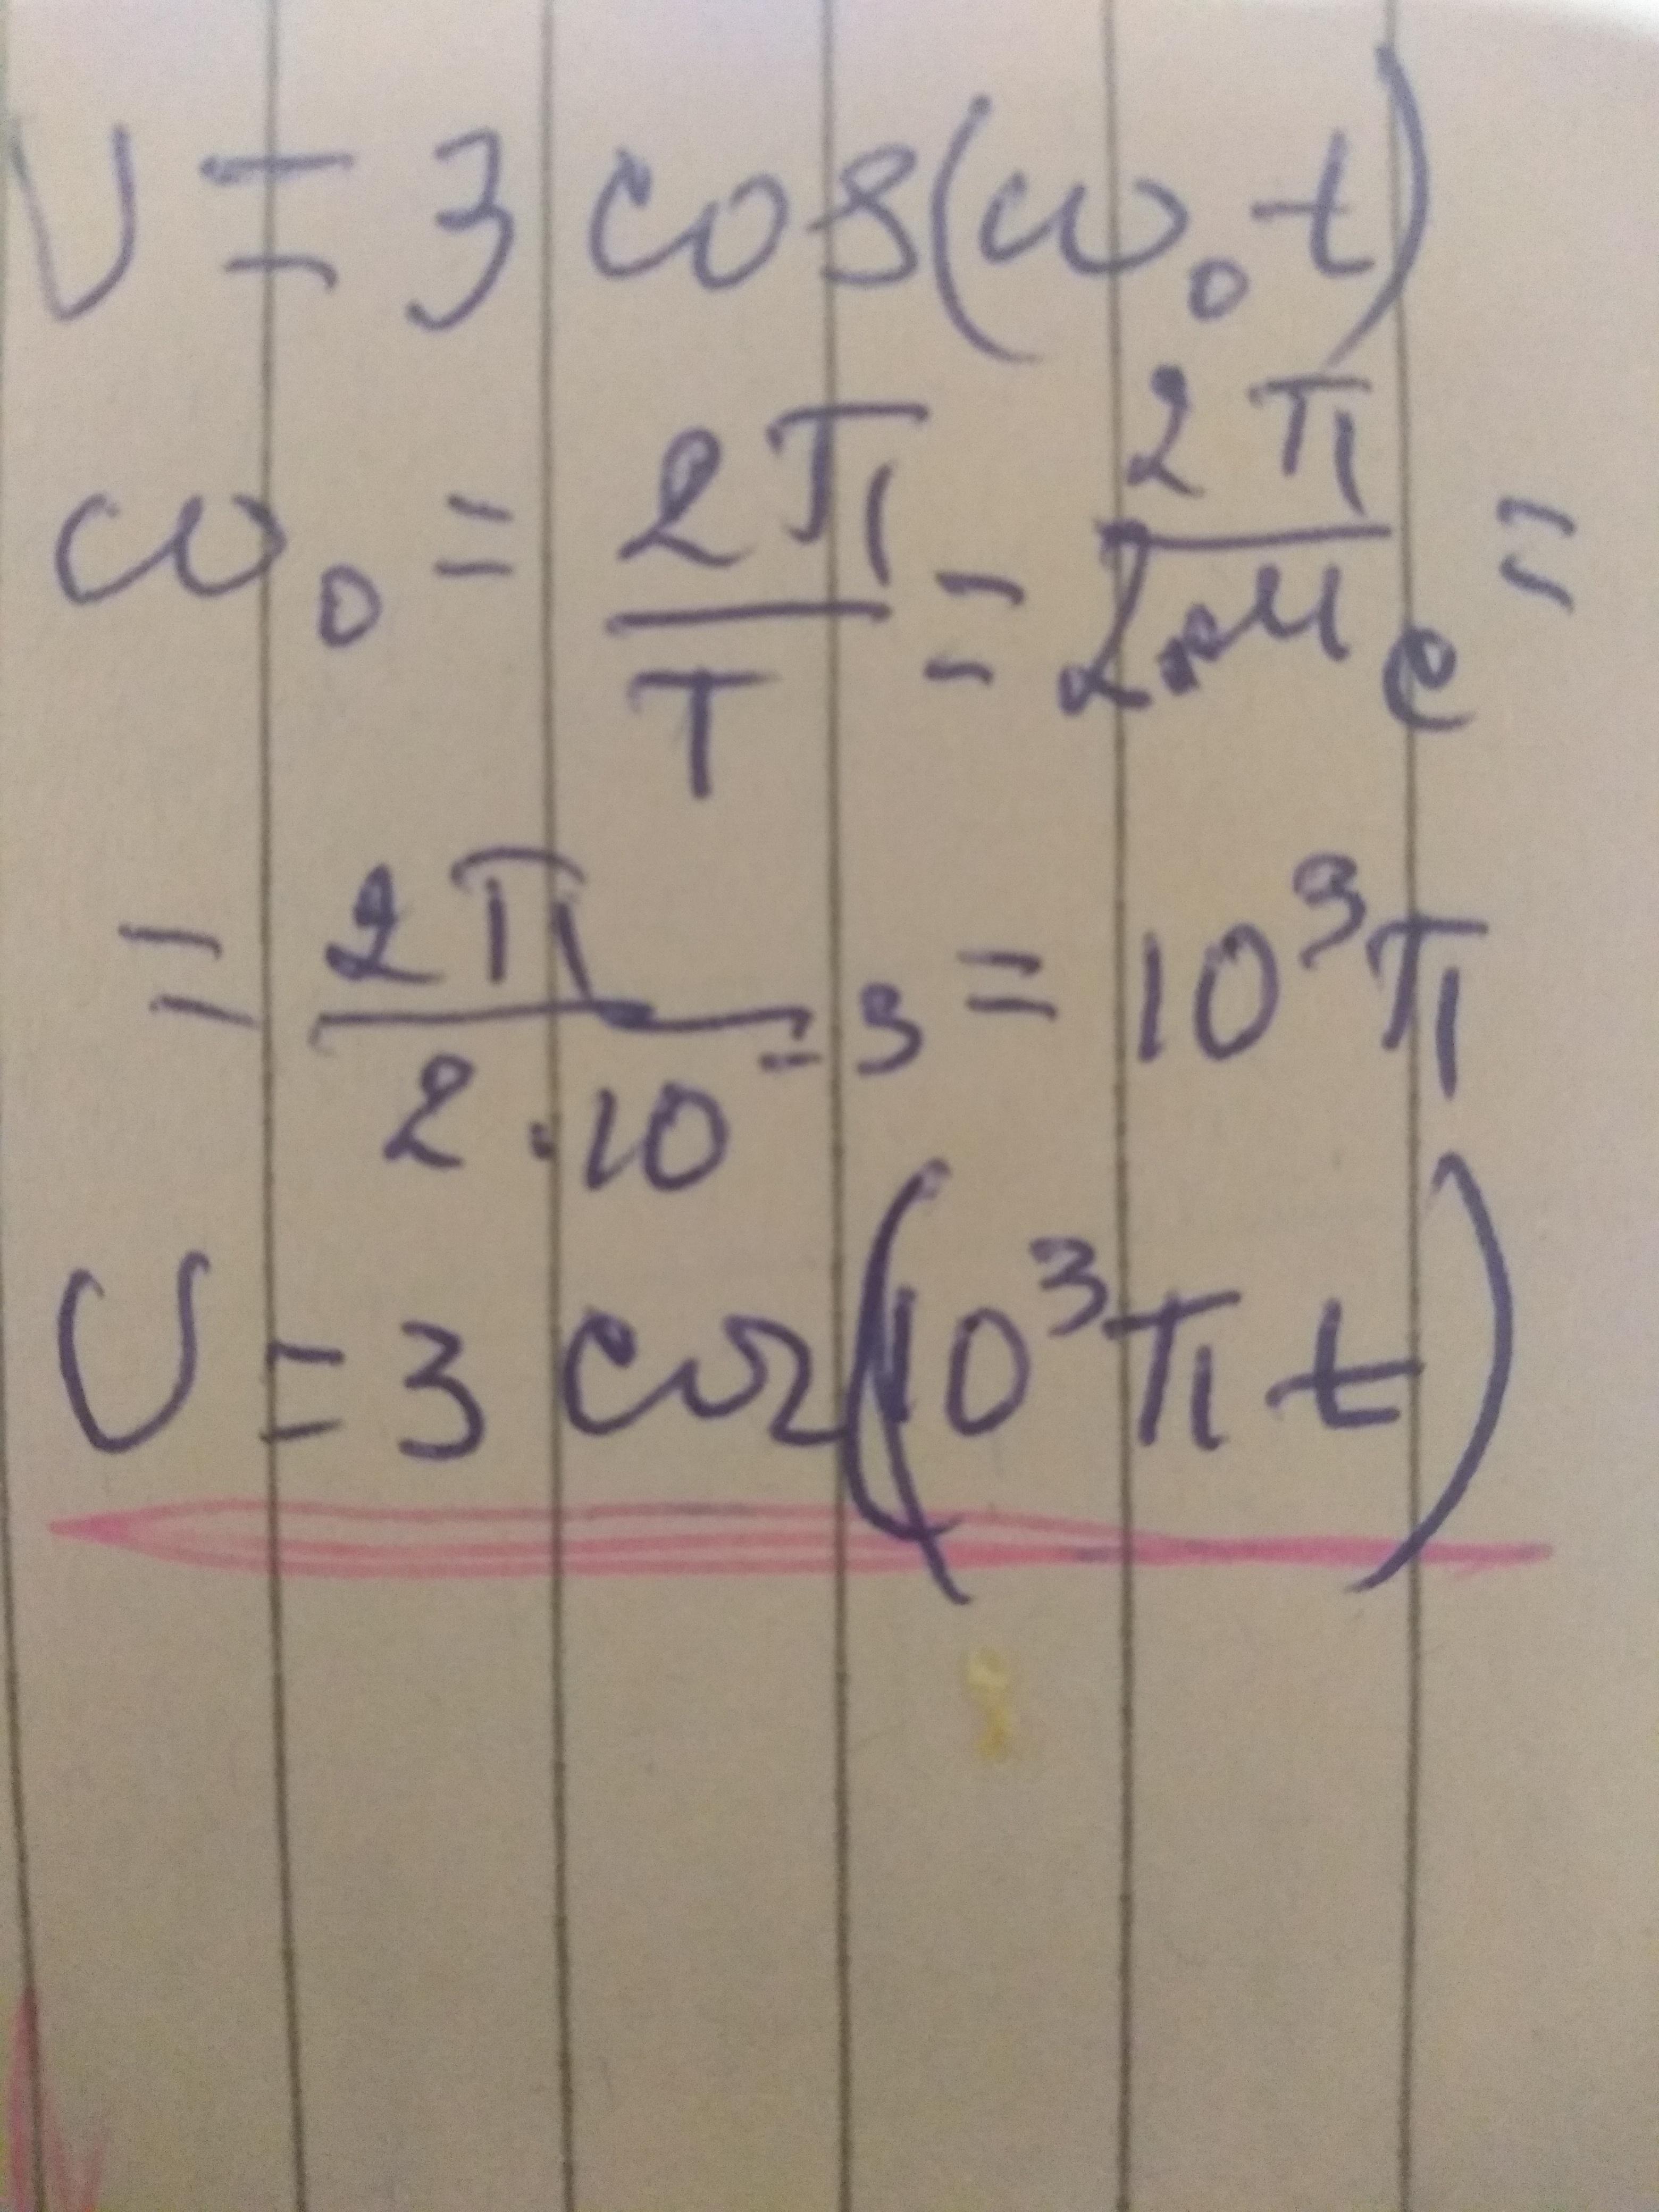 U = 3 cos(ω₀t)
ω₀ = 2π/T = 2π/2мс =
= 2π/2·10⁻³ = 10³π
U = 3 cos(10³πt)